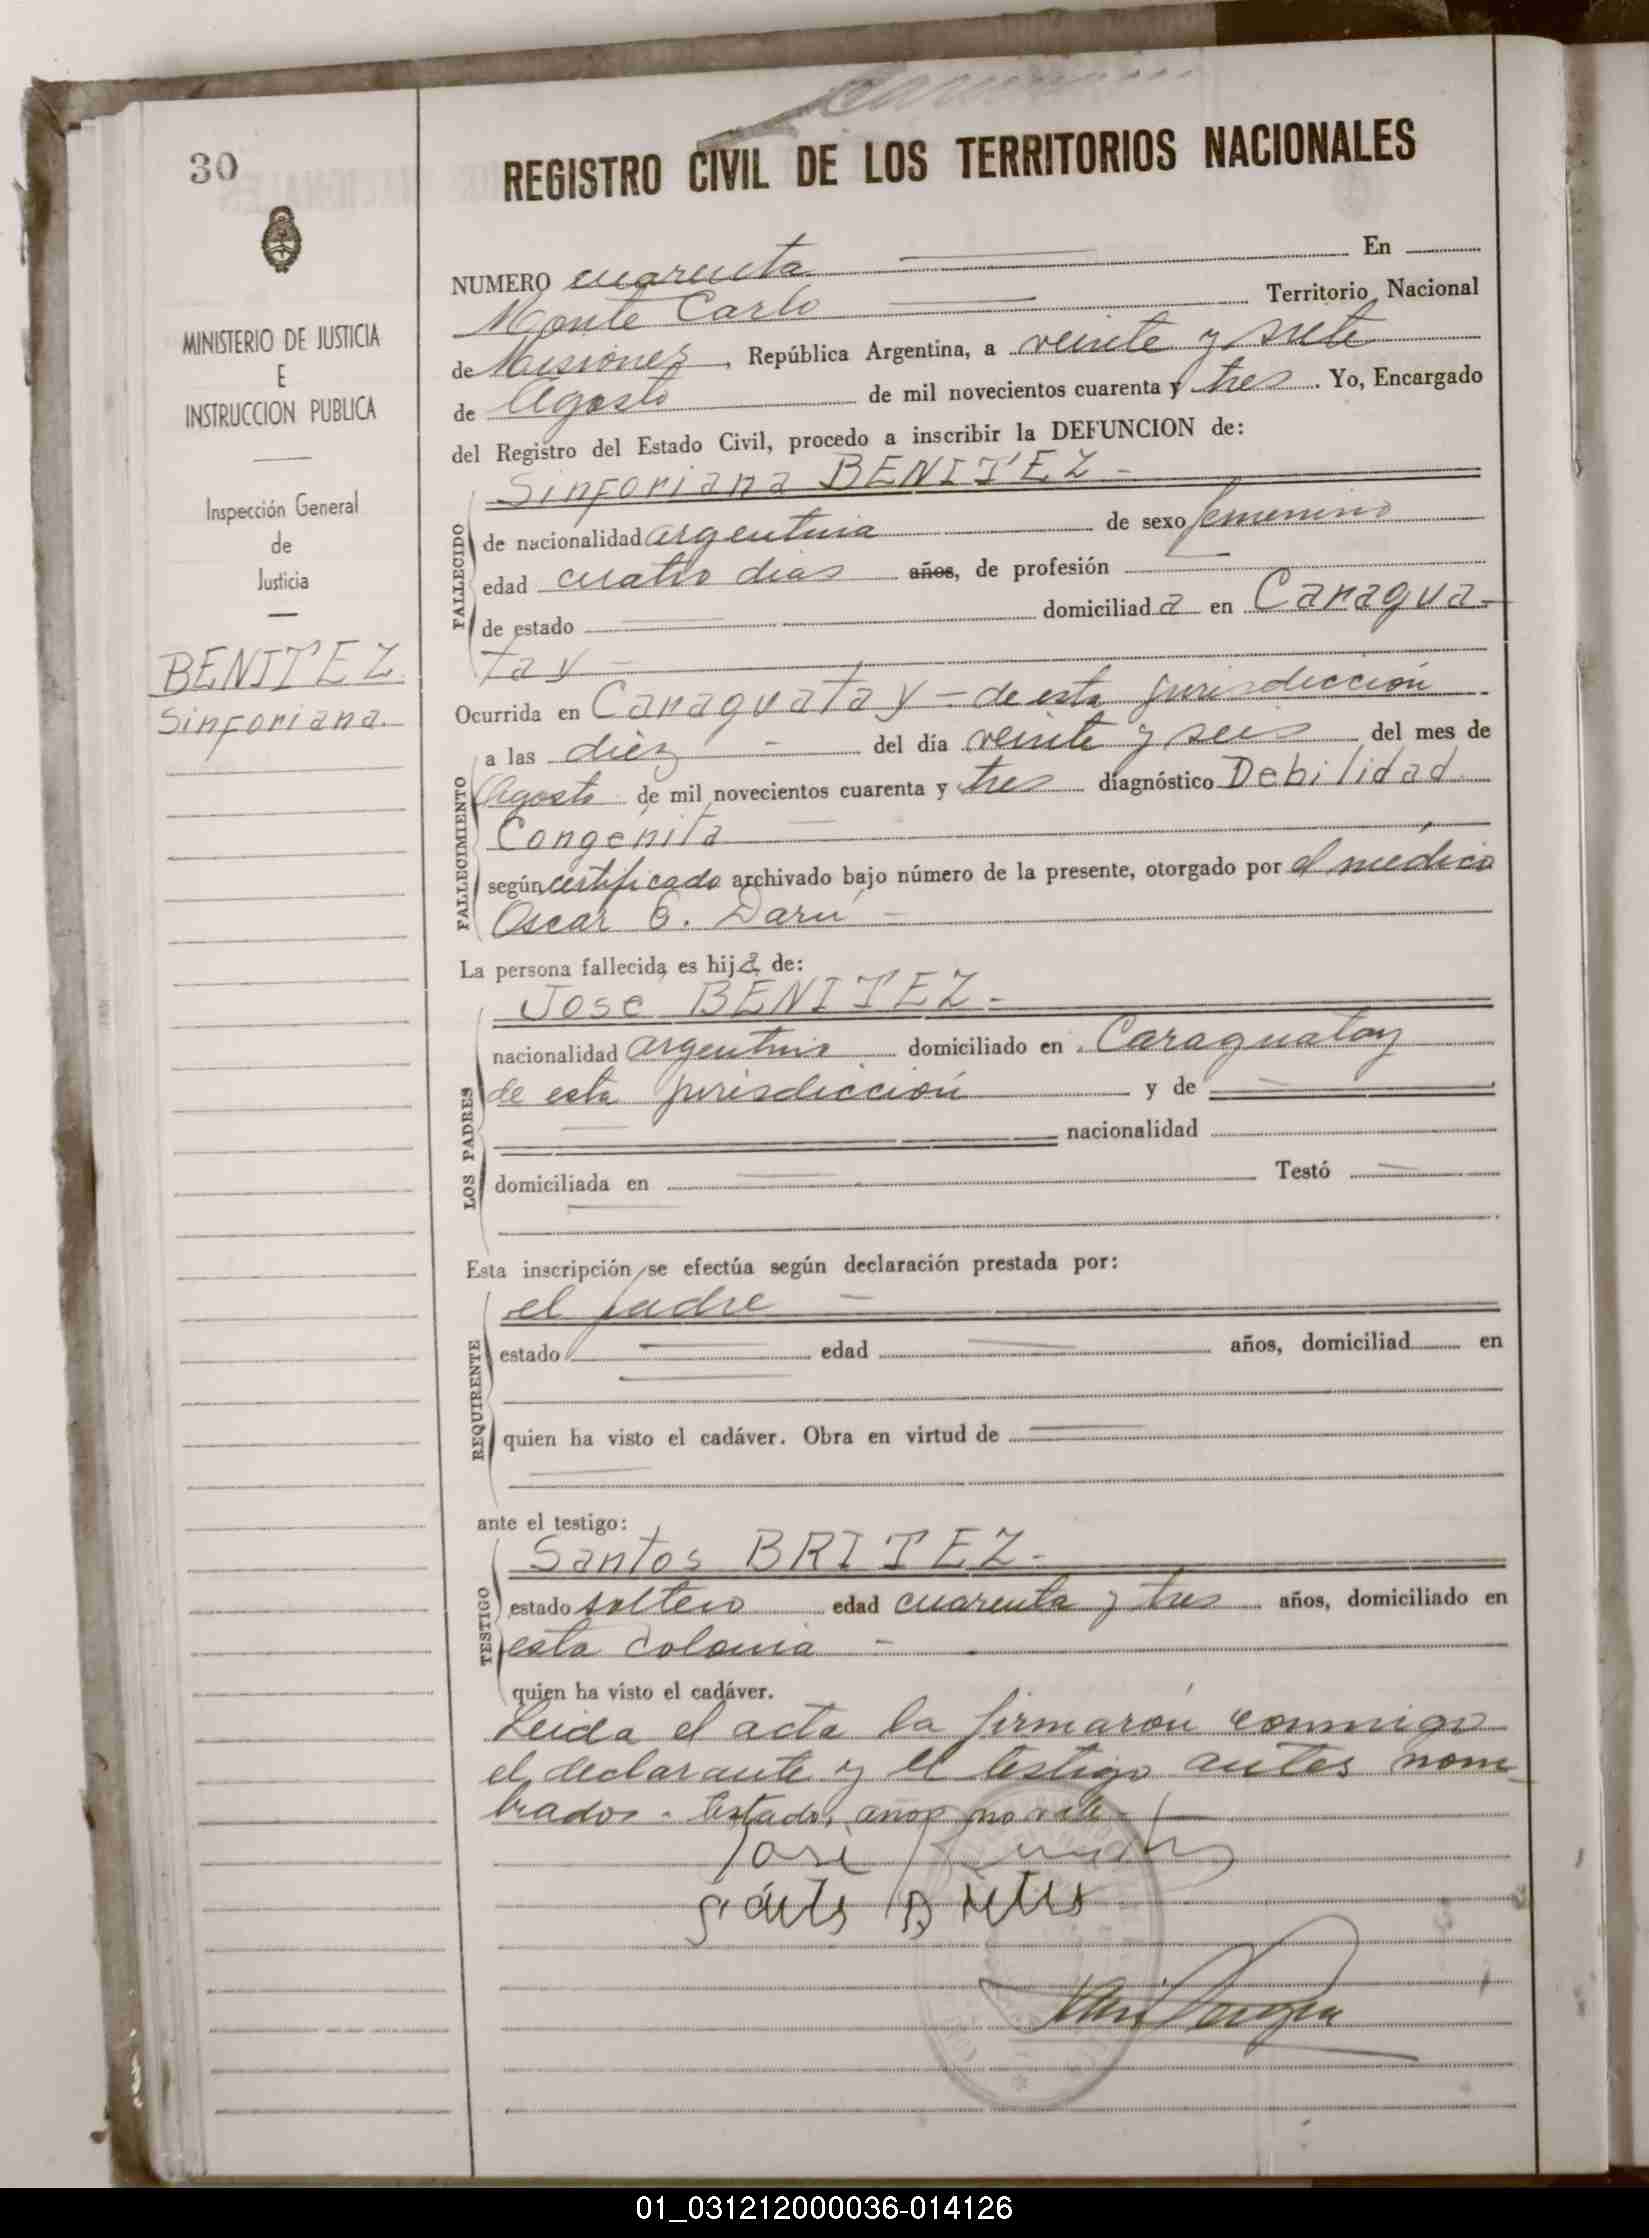 30
MINISTERIO DE JUSTICIA
E
INSTRUCCION PUBLICA
Inspección General
de
Justicia
BENITEZ
Sinforiana.
REGISTRO CIVIL DE LOS TERRITORIOS NACIONALES
NUMERO cuarenta En
Monte Carlo Territorio Nacional
de Misiones, República Argentina, a veinte y siete
de Agosto de mil novecientos cuarenta y tres. Yo, Encargado
del Registro del Estado Civil, procedo a inscribir la DEFUNCION de:
FALLECIDO
Sinforiana BENITEZ-
de nacionalidad argentina de sexo femenino
edad cuatro dias años, de profesión
de estado domiciliada en Caragua-
tay-
FALLECIMIENTO
Ocurrida en Caraguatay - de esta jurisdicción
a las diez - del día veinte y seis del mes de
Agosto de mil novecientos cuarenta y tres diagnóstico Debilidad
Congenita
según certificado archivado bajo número de la presente, otorgado por el médico
Oscar G. Darú -
La persona fallecida es hija de:
LOS PADRES
Jose BENITEZ-
nacionalidad argentino domiciliado en Caraguatay
de esta jurisdicción y de
nacionalidad
domiciliada en Testó
Esta inscripción se efectúa según declaración prestada por:
REQUIRENTE
el padre -
estado edad años, domiciliad en
quien ha visto el cadáver. Obra en virtud de
ante el testigo:
TESTIGO
Santos BRITEZ-
estado soltero edad cuarenta y tres años, domiciliado en
esta colonia -
quien ha visto el cadáver.
Leida el acta la firmarón conmigo
el declarante y el testigo antes nom-
brados - Testado, años no vale -
José
01_031212000036-014126